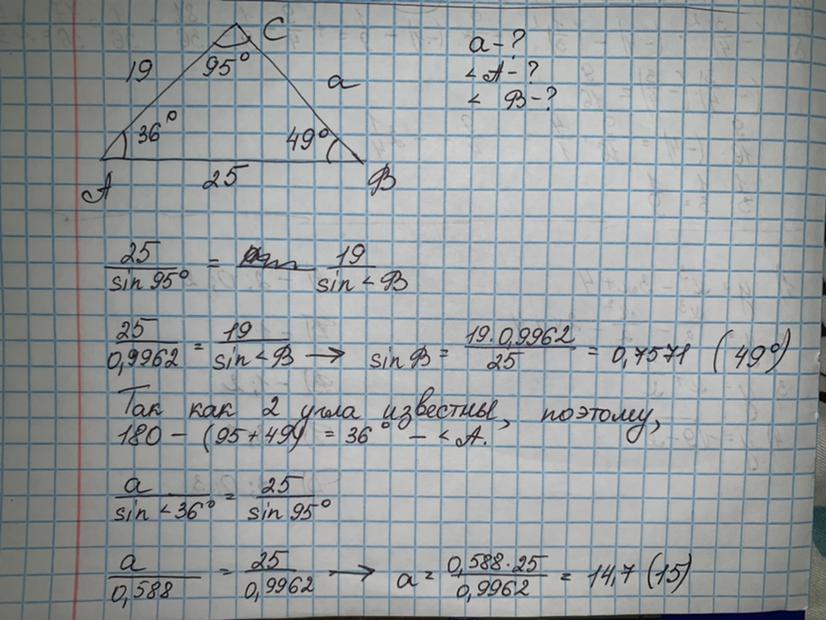 C
19
95°
a
36°
49°
A
25
B
a - ?
< A - ?
< B - ?
25 / sin 95° = 19 / sin < B
25 / 0,9962 = 19 / sin < B → sin B = 19 · 0,9962 / 25 = 0,7571 (49°)
Так как 2 угла известны, поэтому,
180 - (95 + 49) = 36° - < A.
a / sin < 36° = 25 / sin 95°
a / 0,588 = 25 / 0,9962 → a = 0,588 · 25 / 0,9962 = 14,7 (15)